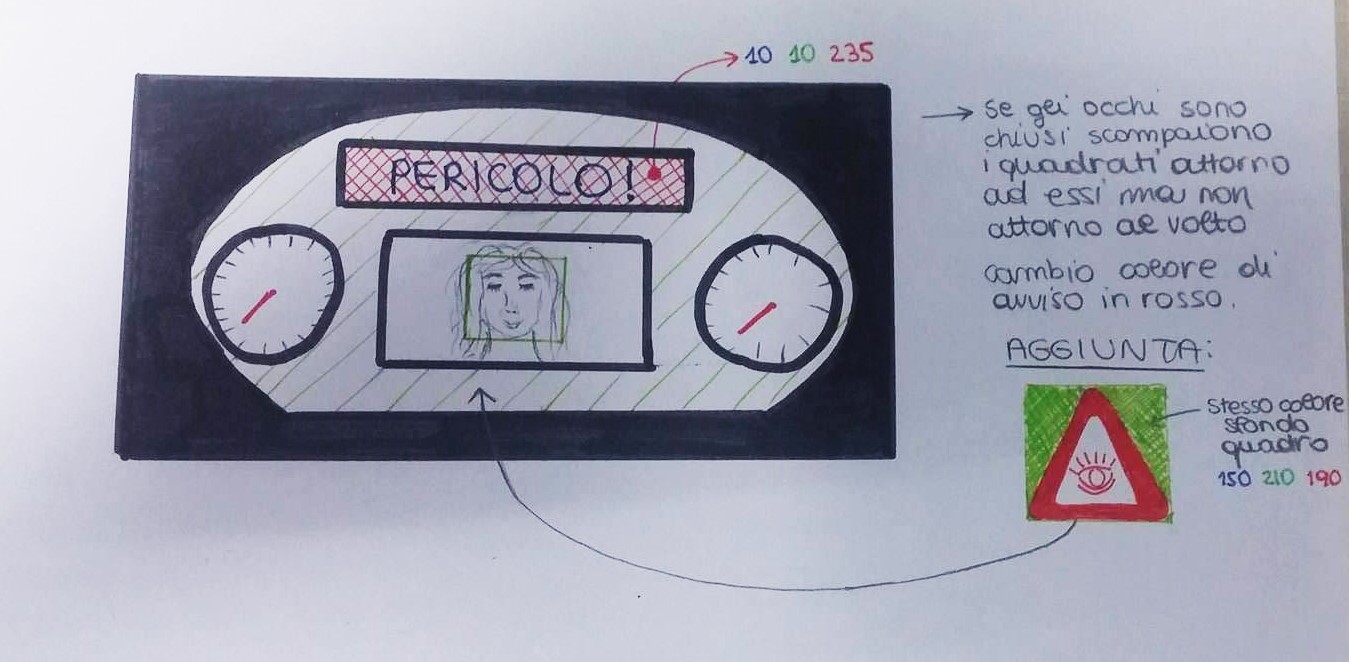 10 10 235
PERICOLO!
→ se gei occhi sono
chiusi scompaiono
i quadrati attorno
ad essi ma non
attorno al volto
cambio colore di
avviso in rosso.
AGGIUNTA:
stesso colore
sfondo
quadro
150 210 190